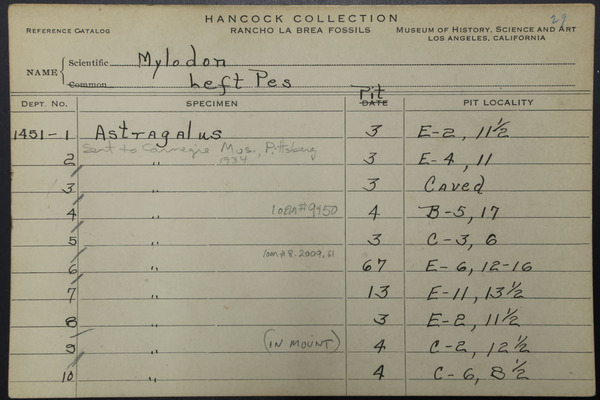 HANCOCK COLLECTION 29
REFERENCE CATALOG RANCHO LA BREA FOSSILS MUSEUM OF HISTORY, SCIENCE AND ART
LOS ANGELES, CALIFORNIA
NAME { Scientific Mylodon
Common Left Pes
Pit
DEPT. NO. SPECIMEN DATE PIT LOCALITY
1451-1 Astragalus 3 E-2, 11 1/2
Sent to Carnegie Mus., Pittsburg
2 1934 " 3 E-4, 11
3 " 3 Caved
4 " loan #9450 4 B-5, 17
5 " 3 C-3, 6
loan #8.2009.61
6 " 67 E-6, 12-16
7 " 13 E-11, 13 1/2
8 " 3 E-2, 11 1/2
9 " (IN MOUNT) 4 C-2, 12 1/2
10 " 4 C-6, 8 1/2